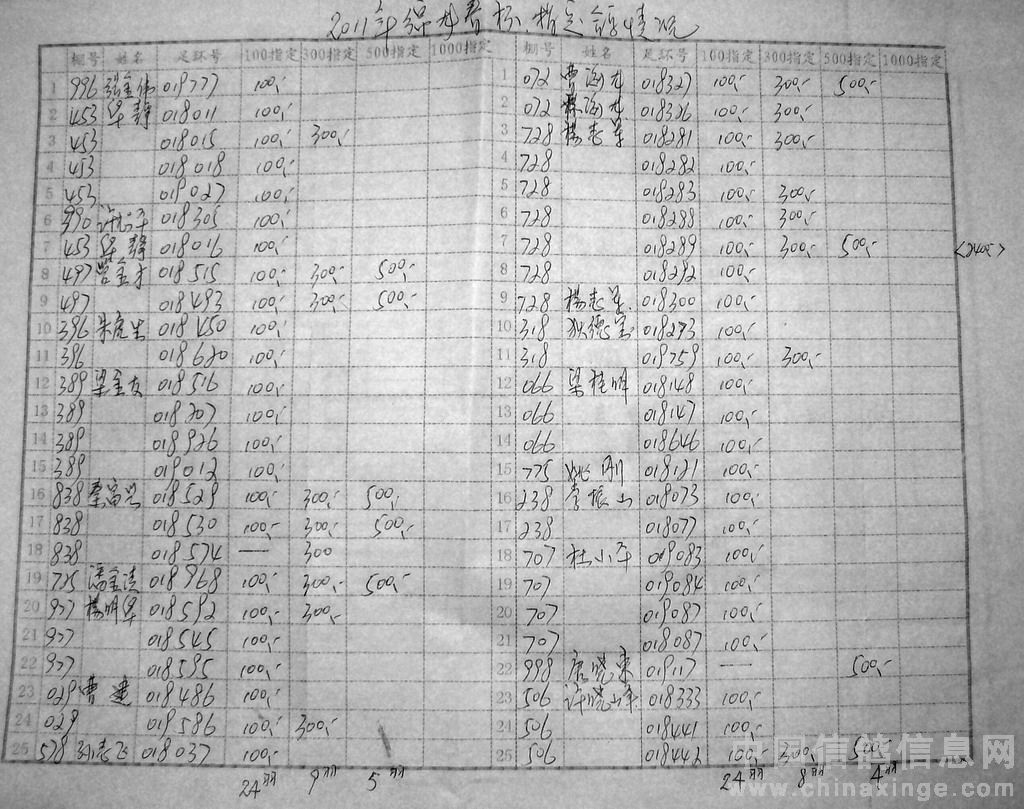 2011年 指定鸽情况
棚号 姓名 足环号 100指定 300指定 500指定 1000指定
1 996 018777 100,-
2 453 华静 018011 100,-
3 453 018015 100,- 300,-
4 453 018018 100,-
5 453 019027 100,-
6 990 018305 100,-
7 453 华静 018016 100,-
8 497 018515 100,- 300,- 500,-
9 497 018493 100,- 300,- 500,-
10 396 朱虎生 018450 100,-
11 396 018620 100,-
12 389 梁金友 018516 100,-
13 389 018707 100,-
14 389 018926 100,-
15 389 019012 100,-
16 838 秦富兴 018529 100,- 300,- 500,-
17 838 018530 100,- 300,- 500,-
18 838 018574 — 300
19 775 潘金清 018968 100,- 300,- 500,-
20 977 杨明华 018592 100,- 300,-
21 977 018545 100,-
22 977 018595 100,-
23 029 曹建 018486 100,-
24 029 019586 100,- 300,-
25 578 孙志飞 018037 100,-
24羽 9羽 5羽
棚号 姓名 足环号 100指定 300指定 500指定 1000指定
1 072 曹海尤 018327 100,- 300,- 500,-
2 072 018326 100,- 300,-
3 728 018281 100,- 300,-
4 728 018282 100,-
5 728 018283 100,- 300,-
6 728 018288 100,- 300,-
7 728 018289 100,- 300,- 500,-
8 728 018292 100,-
9 728 018300 100,-
10 318 狄德宝 018293 100,-
11 318 019759 100,- 300,-
12 066 梁桂明 018148 100,-
13 066 018147 100,-
14 066 018646 100,-
15 775 姚刚 018121 100,-
16 238 李振山 018073 100,-
17 238 018077 100,-
18 707 杜小平 019083 100,-
19 707 019084 100,-
20 707 019087 100,-
21 707 018087 100,-
22 998 唐晓东 019117 — 500,-
23 506 018333 100,-
24 506 018441 100,-
25 506 018442 100,- 300,- 500,-
24羽 8羽 4羽
中国信鸽信息网
www.chinaxinge.com